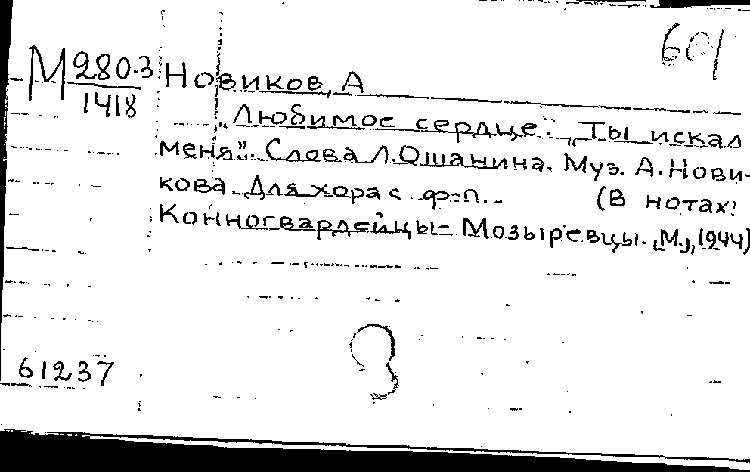 601
М 280-3 Новиков, А
1418
„Любимое сердце". „Ты искал
меня". Слова Л. Ошанина. Муз. А. Нови-
кова. Для хора с ф-п. (В нотах:
Конногвардейцы - Мозыревцы. М., 1944)
61237